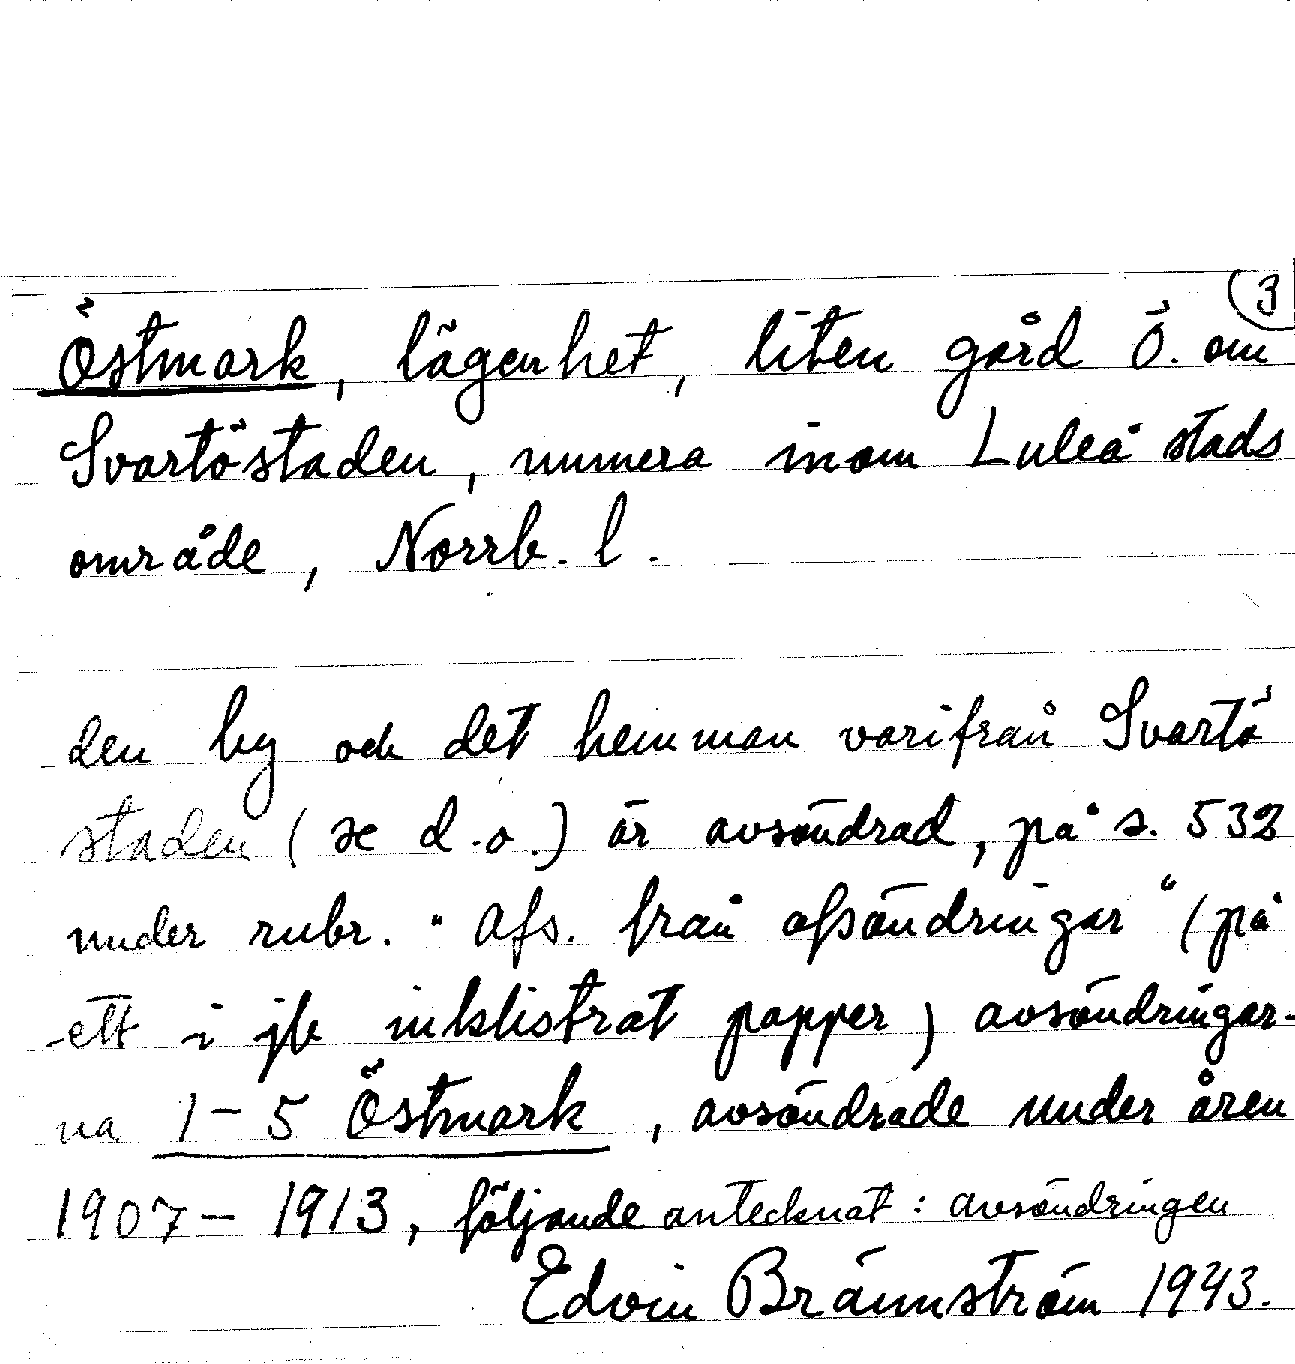 3
Östmark, lägenhet, liten gård Ö. om
Svartöstaden, numera inom Luleå stads
område, Norrb. l.
den by och det hemman varifrån Svartö
staden (se d.o.) är avsöndrad, på s. 532
under rubr. "Afs. från afsöndringar" (på
ett i jb inklistrat papper) avsöndringar-
na 1-5 Östmark, avsöndrade under åren
1907-1913, följande antecknat: avsöndringen
Edvin Brännström 1943.